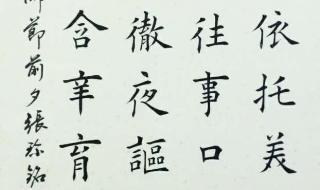 依托美
往事口
徹夜謳
含辛育
節前夕張銘